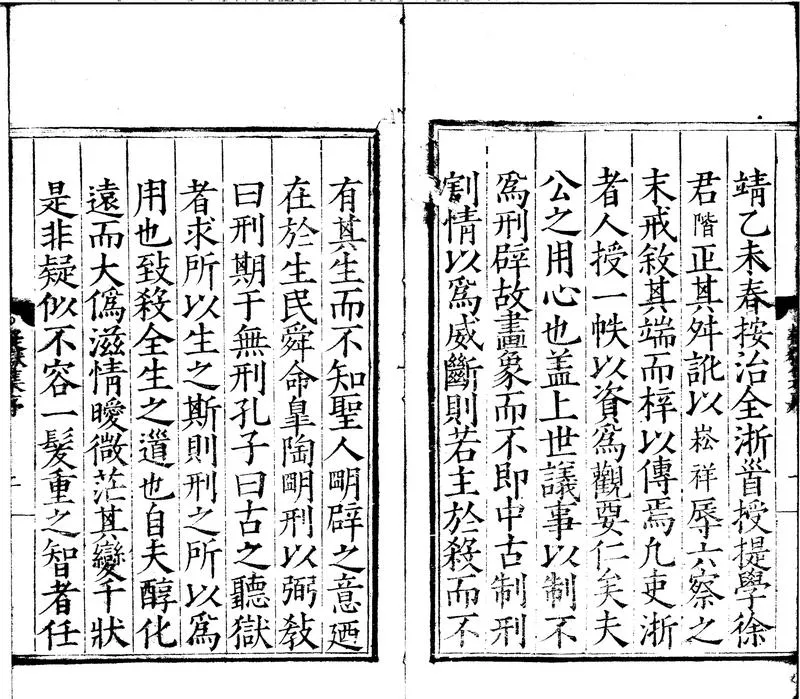 靖乙未春按治全浙首授提學徐
君階正其舛訛以崧祥辱六察之
末戒敘其端而梓以傳焉凢吏浙
者人授一帙以資爲觀要仁矣夫
公之用心也盖上世議事以制不
爲刑辟故畫象而不即中古制刑
割情以爲威斷則若主於殺而不
有其生而不知聖人明辟之意廼
在於生民舜命皐陶明刑以弼教
曰刑期于無刑孔子曰古之聽獄
者求所以生之斯則刑之所以爲
用也致殺全生之道也自夫醇化
遠而大僞滋情曖微茫其變千狀
是非疑似不容一髮重之智者任